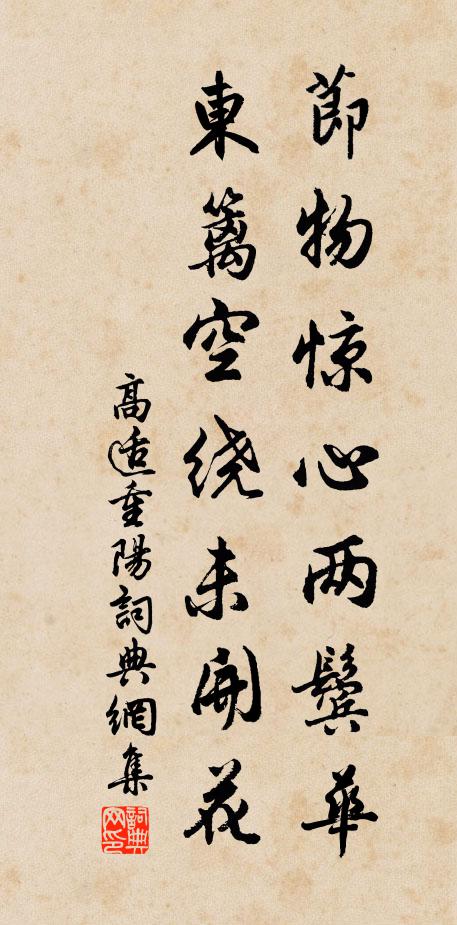 節物惊心两鬓華
東籬空绕未開花
高适重陽詞典網集
詞典网印